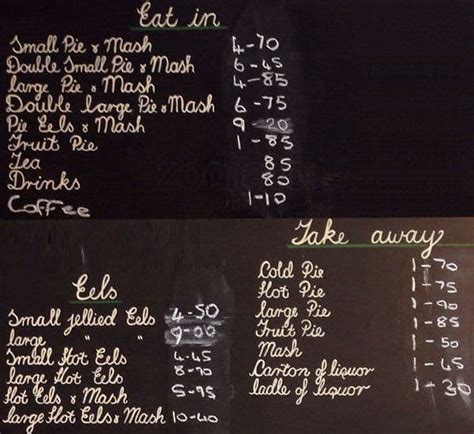 Eat in
Small Pie & Mash 4-70
Double Small Pie & Mash 6-45
large Pie & Mash 4-85
Double large Pie & Mash 6-75
Pie Eels & Mash 9-20
Fruit Pie 1-85
Tea 85
Drinks 80
Coffee 1-10
Eels
Small jellied Eels 4-50
large " " 9-00
Small Hot Eels 4-45
large Hot Eels 8-90
Hot Eels & Mash 5-95
large Hot Eels & Mash 10-40
Take away
Cold Pie 1-70
Hot Pie 1-75
large Pie 1-90
Fruit Pie 1-85
Mash 1-50
Carton of liquor 1-45
ladle of liquor 1-30